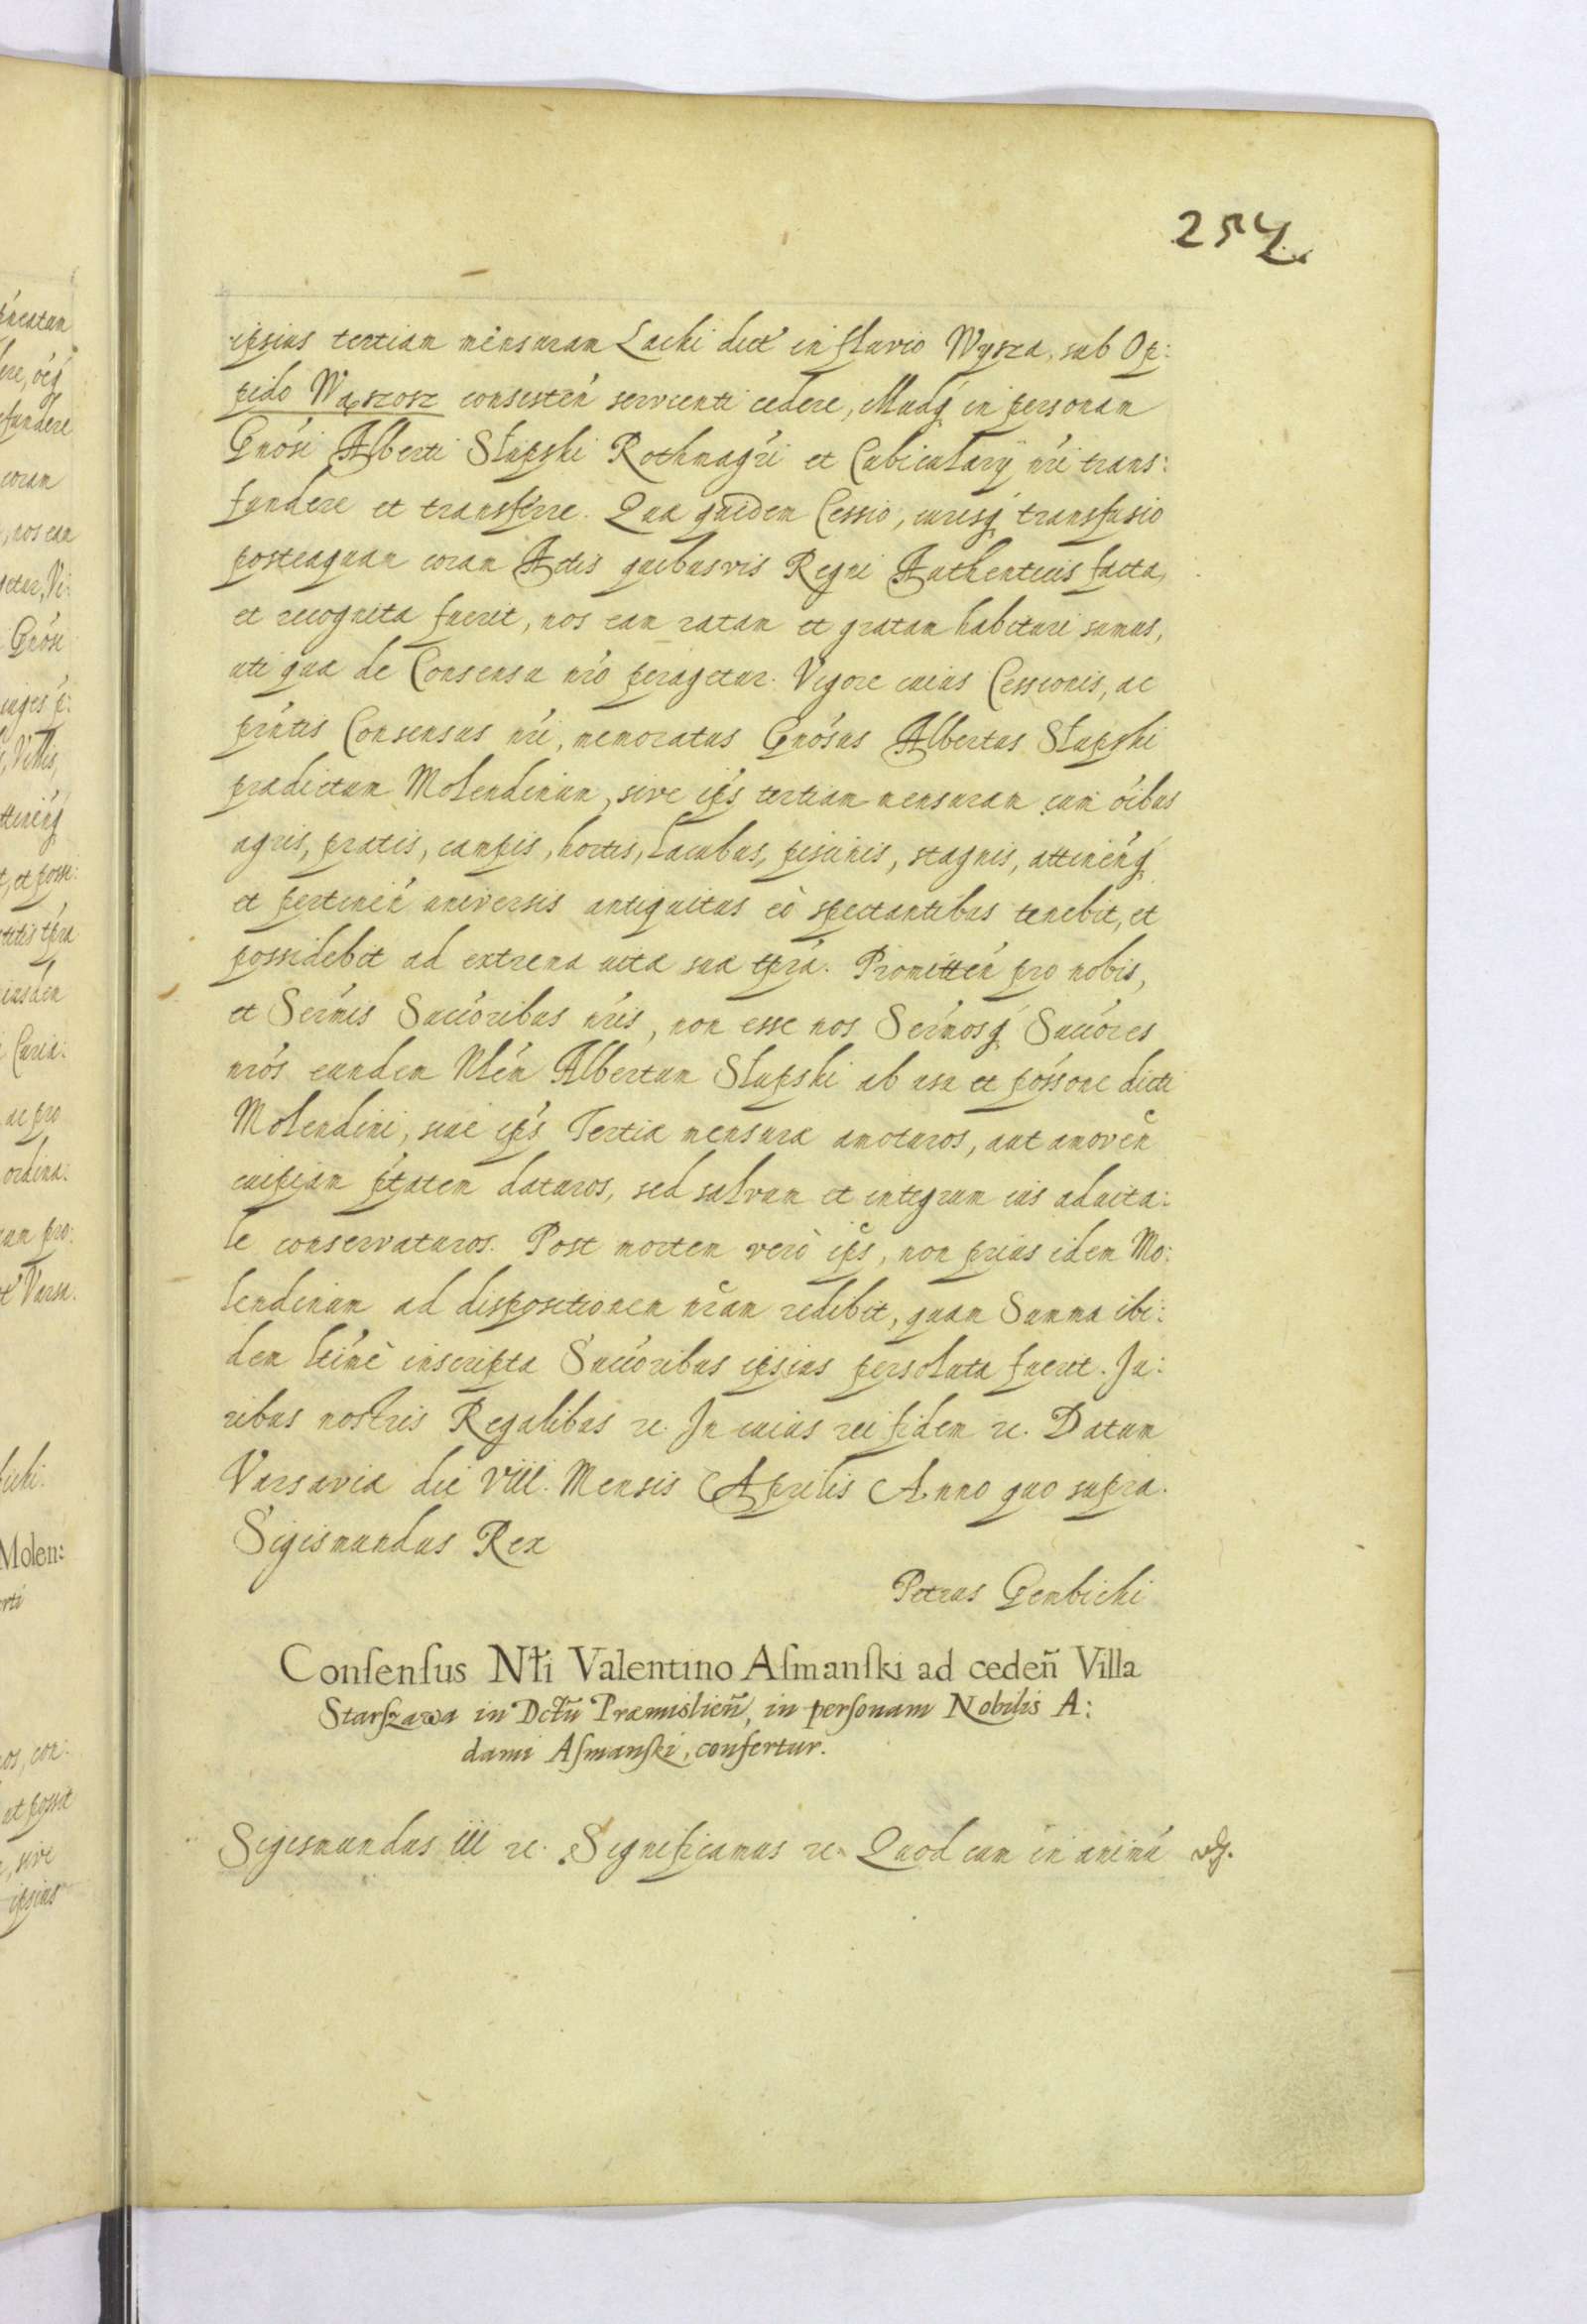 254.
ipsius tertiam mensuram Lachi dict' in fluvio Wyssa, sub Op:
pido Wąszosz consisten' servienti cedere, illudq́ in personam
Gnósi Alberti Słupski Rothmagr'i et Cubicularij nr'i trans:
fundere et transferre. Qua quidem Cessio, iurisq́ transfusio
posteaquam coram Actis quibusvis Regni Authenticis facta,
et recognita fuerit, nos eam ratam et gratam habituri sumus,
uti qua de Consensu nró peragetur. Vigore cuius Cessionis, ac
prn'tis Consensus nr'i, memoratus Gnósus Albertus Słupski
pradictum Molendinum, sive ip's tertiam mensuram cum óibus
agris, pratis, campis, hortis, lacubus, piscinis, stagnis, attinen'q́
et pertinen' universis antiquitus eò spectantibus tenebit, et
possidebit ad extrema vita sua tp'ra. Promitten' pro nobis,
et Ser'mis Succ'oribus nr'is, non esse nos Ser'mosq́ Succ'ores
nrós eundem Nlém Albertum Słupski ab usu et póssone dicti
Molendini, siue ip's Tertia mensura amoturos, aut amoven'
cuipiam p'tatem daturos, sed salvum et integrum ius aduita:
le conservaturos. Post mortem verò ip's, non prius idem Mo:
lendinum ad dispositionem nr'am redibit, quam Summa ibi:
dem ltimè inscripta Succ'oribus ipsius persoluta fuerit. Iu:
ribus nostris Regalibus rc. In cuius rei fidem rc. Datum
Varsavia die VIII. Mensis Aprilis Anno quo supra.
Sigismundus Rex
Petrus Gembicki
Conſenſus Nłi Valentino Aſmanſki ad cedeñ Villa
Starſzawa in Dctũ Præmislieñ, in perſonam Nobilis A:
dami Aſmanſki, confertur.
Sigismundus III rc. Significamus rc. Quod cum in animu'